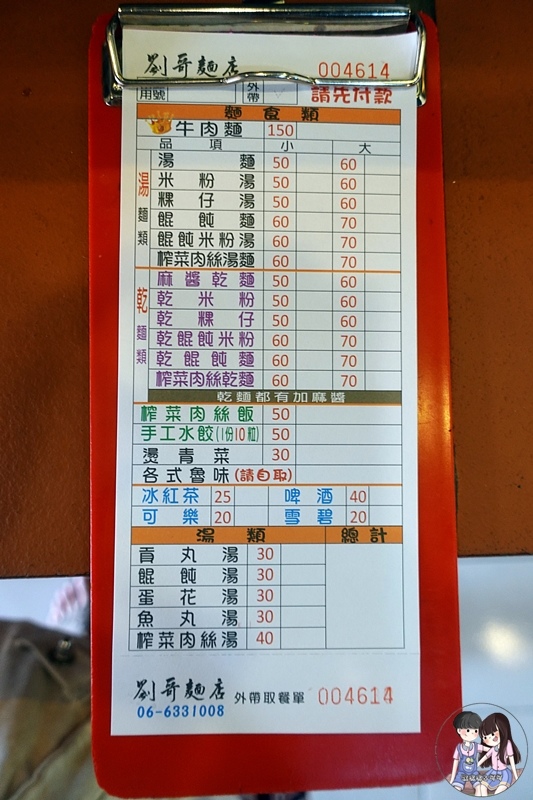 劉哥麵店 004614
用號 外帶 請先付款
麵食類
牛肉麵 150
品項 小 大
湯麵類
湯麵 50 60
米粉湯 50 60
粿仔湯 50 60
餛飩麵 60 70
餛飩米粉湯 60 70
榨菜肉絲湯麵 60 70
乾麵類
麻醬乾麵 50 60
乾米粉 50 60
乾粿仔 50 60
乾餛飩米粉 60 70
乾餛飩麵 60 70
榨菜肉絲乾麵 60 70
乾麵都有加麻醬
榨菜肉絲飯 50
手工水餃(1份10粒) 50
燙青菜 30
各式魯味(請自取)
冰紅茶 25 啤酒 40
可樂 20 雪碧 20
湯類 總計
貢丸湯 30
餛飩湯 30
蛋花湯 30
魚丸湯 30
榨菜肉絲湯 40
劉哥麵店 外帶取餐單 004614
06-6331008